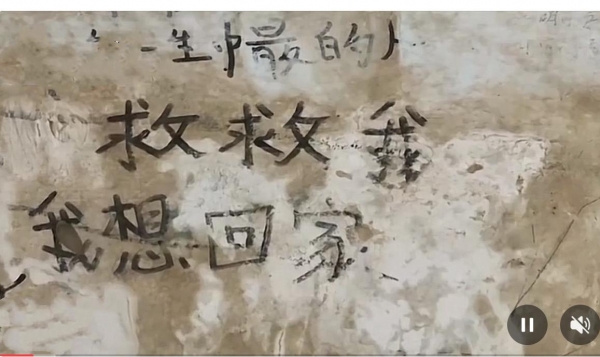 一生中最的
救救我
我想回家